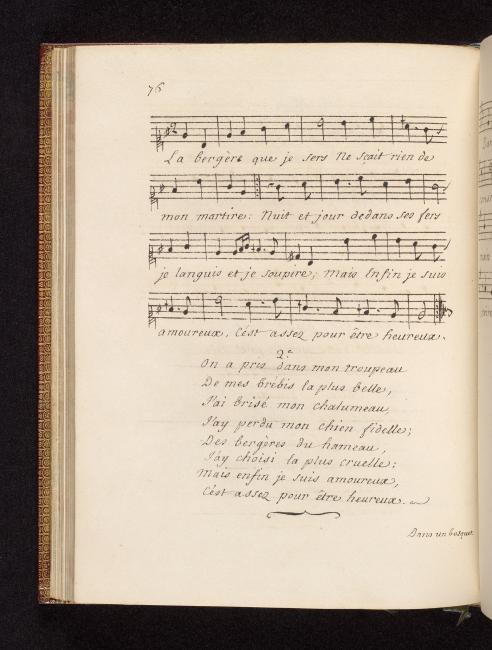 76
La bergère que je sers Ne sçait rien de
mon martire: Nuit et jour dedans ses fers
je languis et je soupire; Mais Enfin je suis
amoureux, C'ést assez pour être heureux.
2.e
On a pris dans mon troupeau
De mes brébis la plus belle,
J'ai brisé mon chalumeau,
J'ay perdu mon chien fidelle;
Des bergères du hameau,
J'ay choisi la plus cruelle;
Mais enfin je suis amoureux,
C'ést assez pour être heureux.
Dans un bosquet